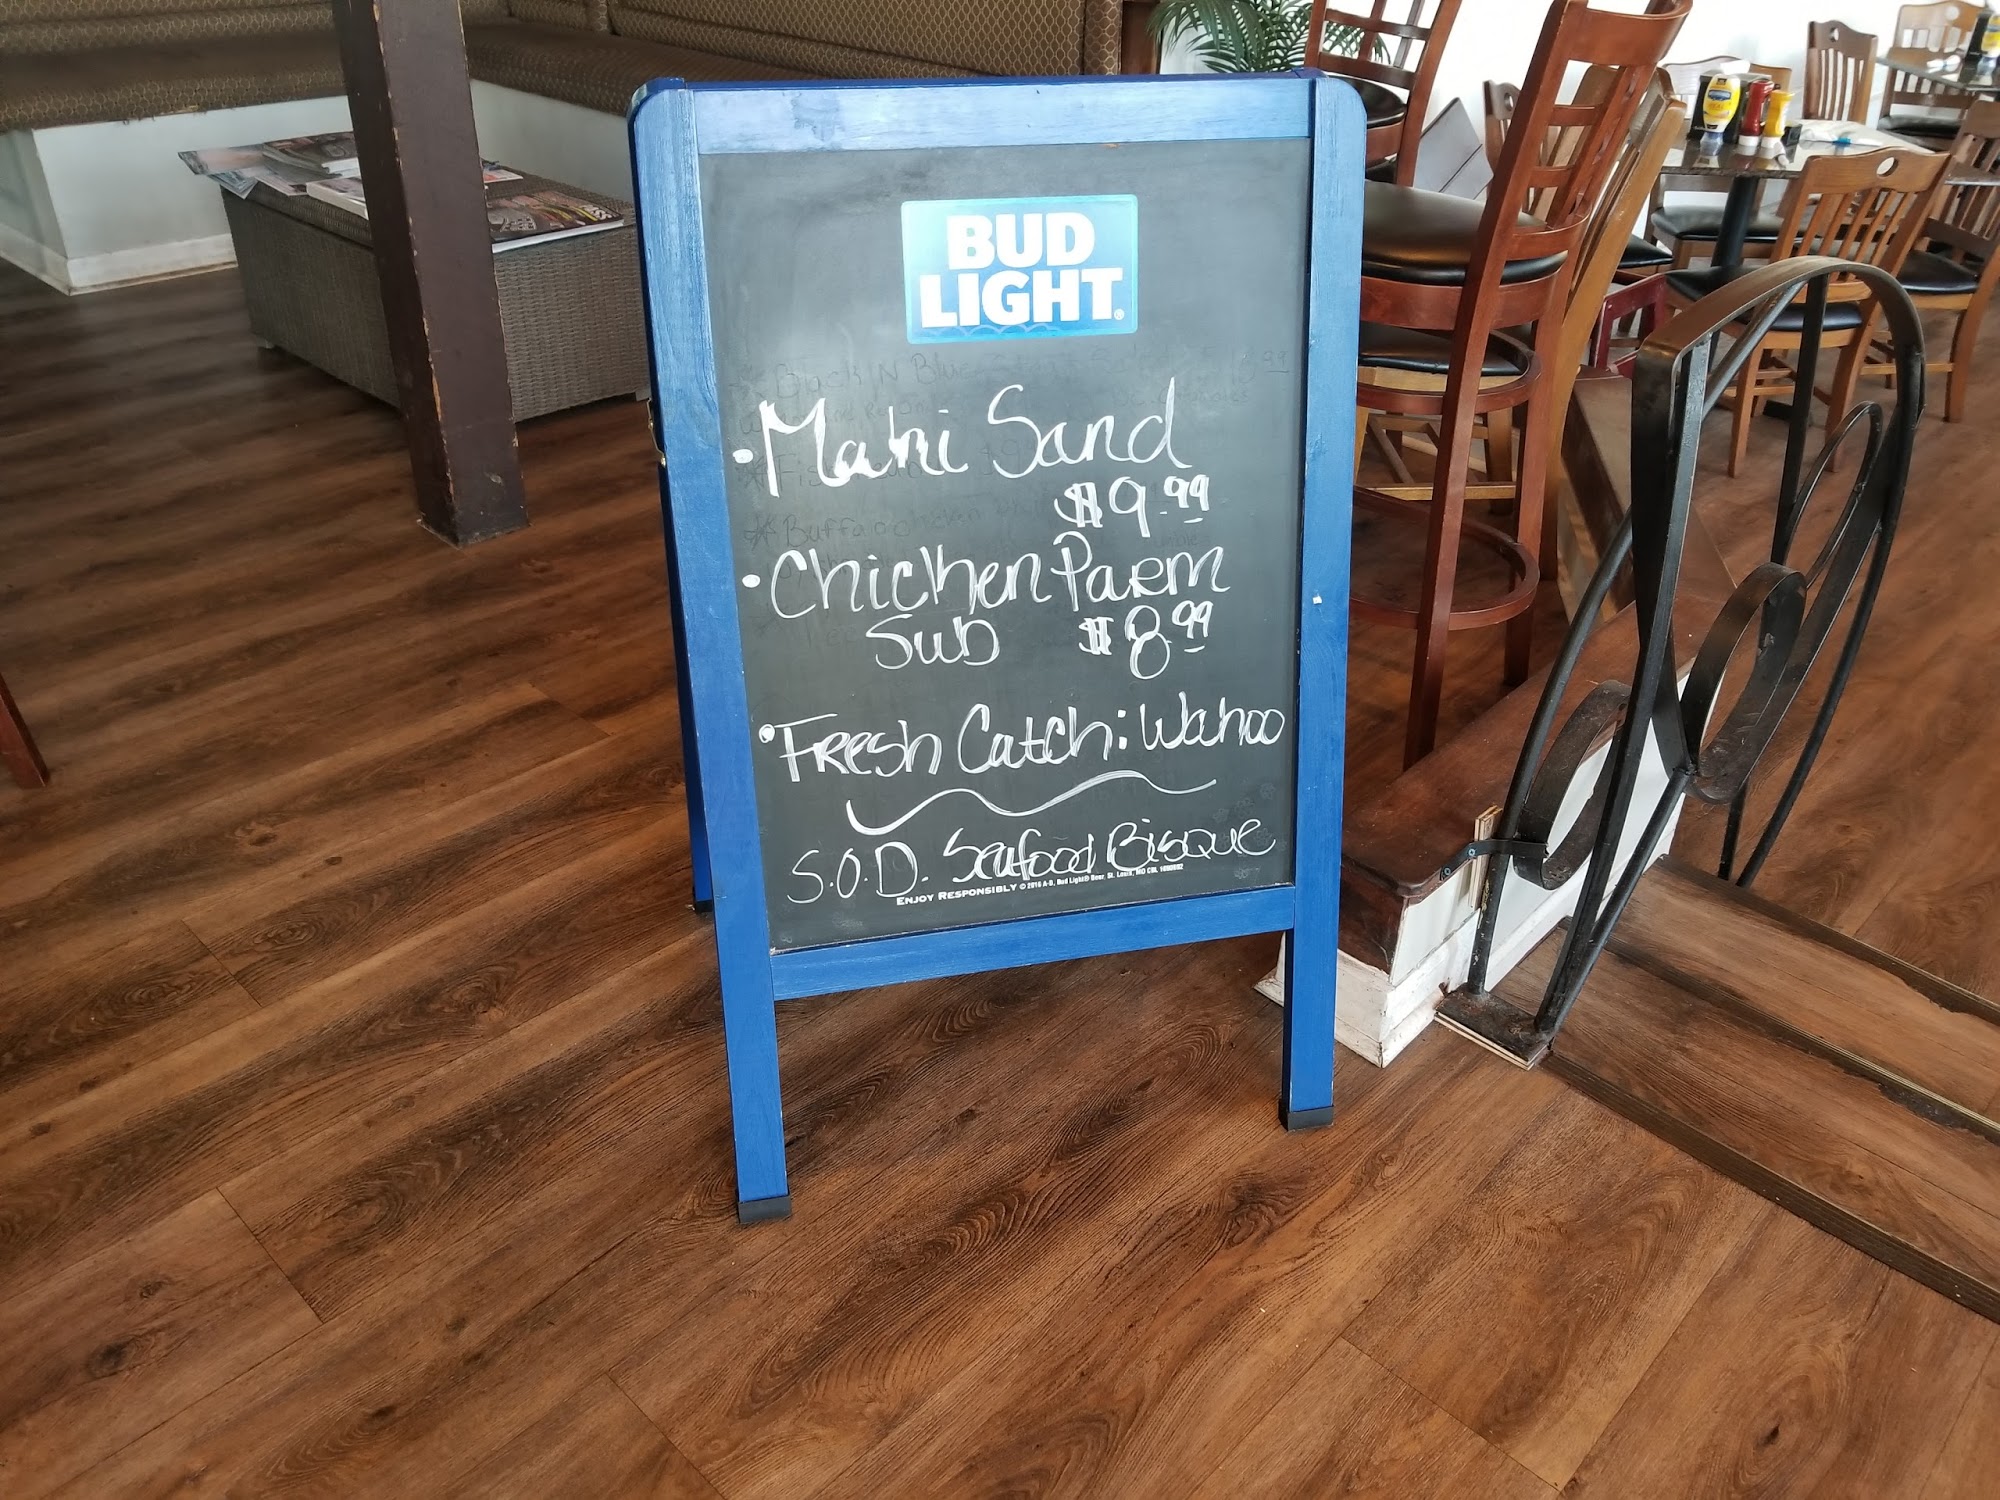 BUD
LIGHT®
• Mahi Sand
$9.99
• Chicken Parm
Sub $8.99
• Fresh Catch: Wahoo
S.O.D. Seafood Bisque
ENJOY RESPONSIBLY © 2016 A-B, Bud Light® Beer, St. Louis, MO